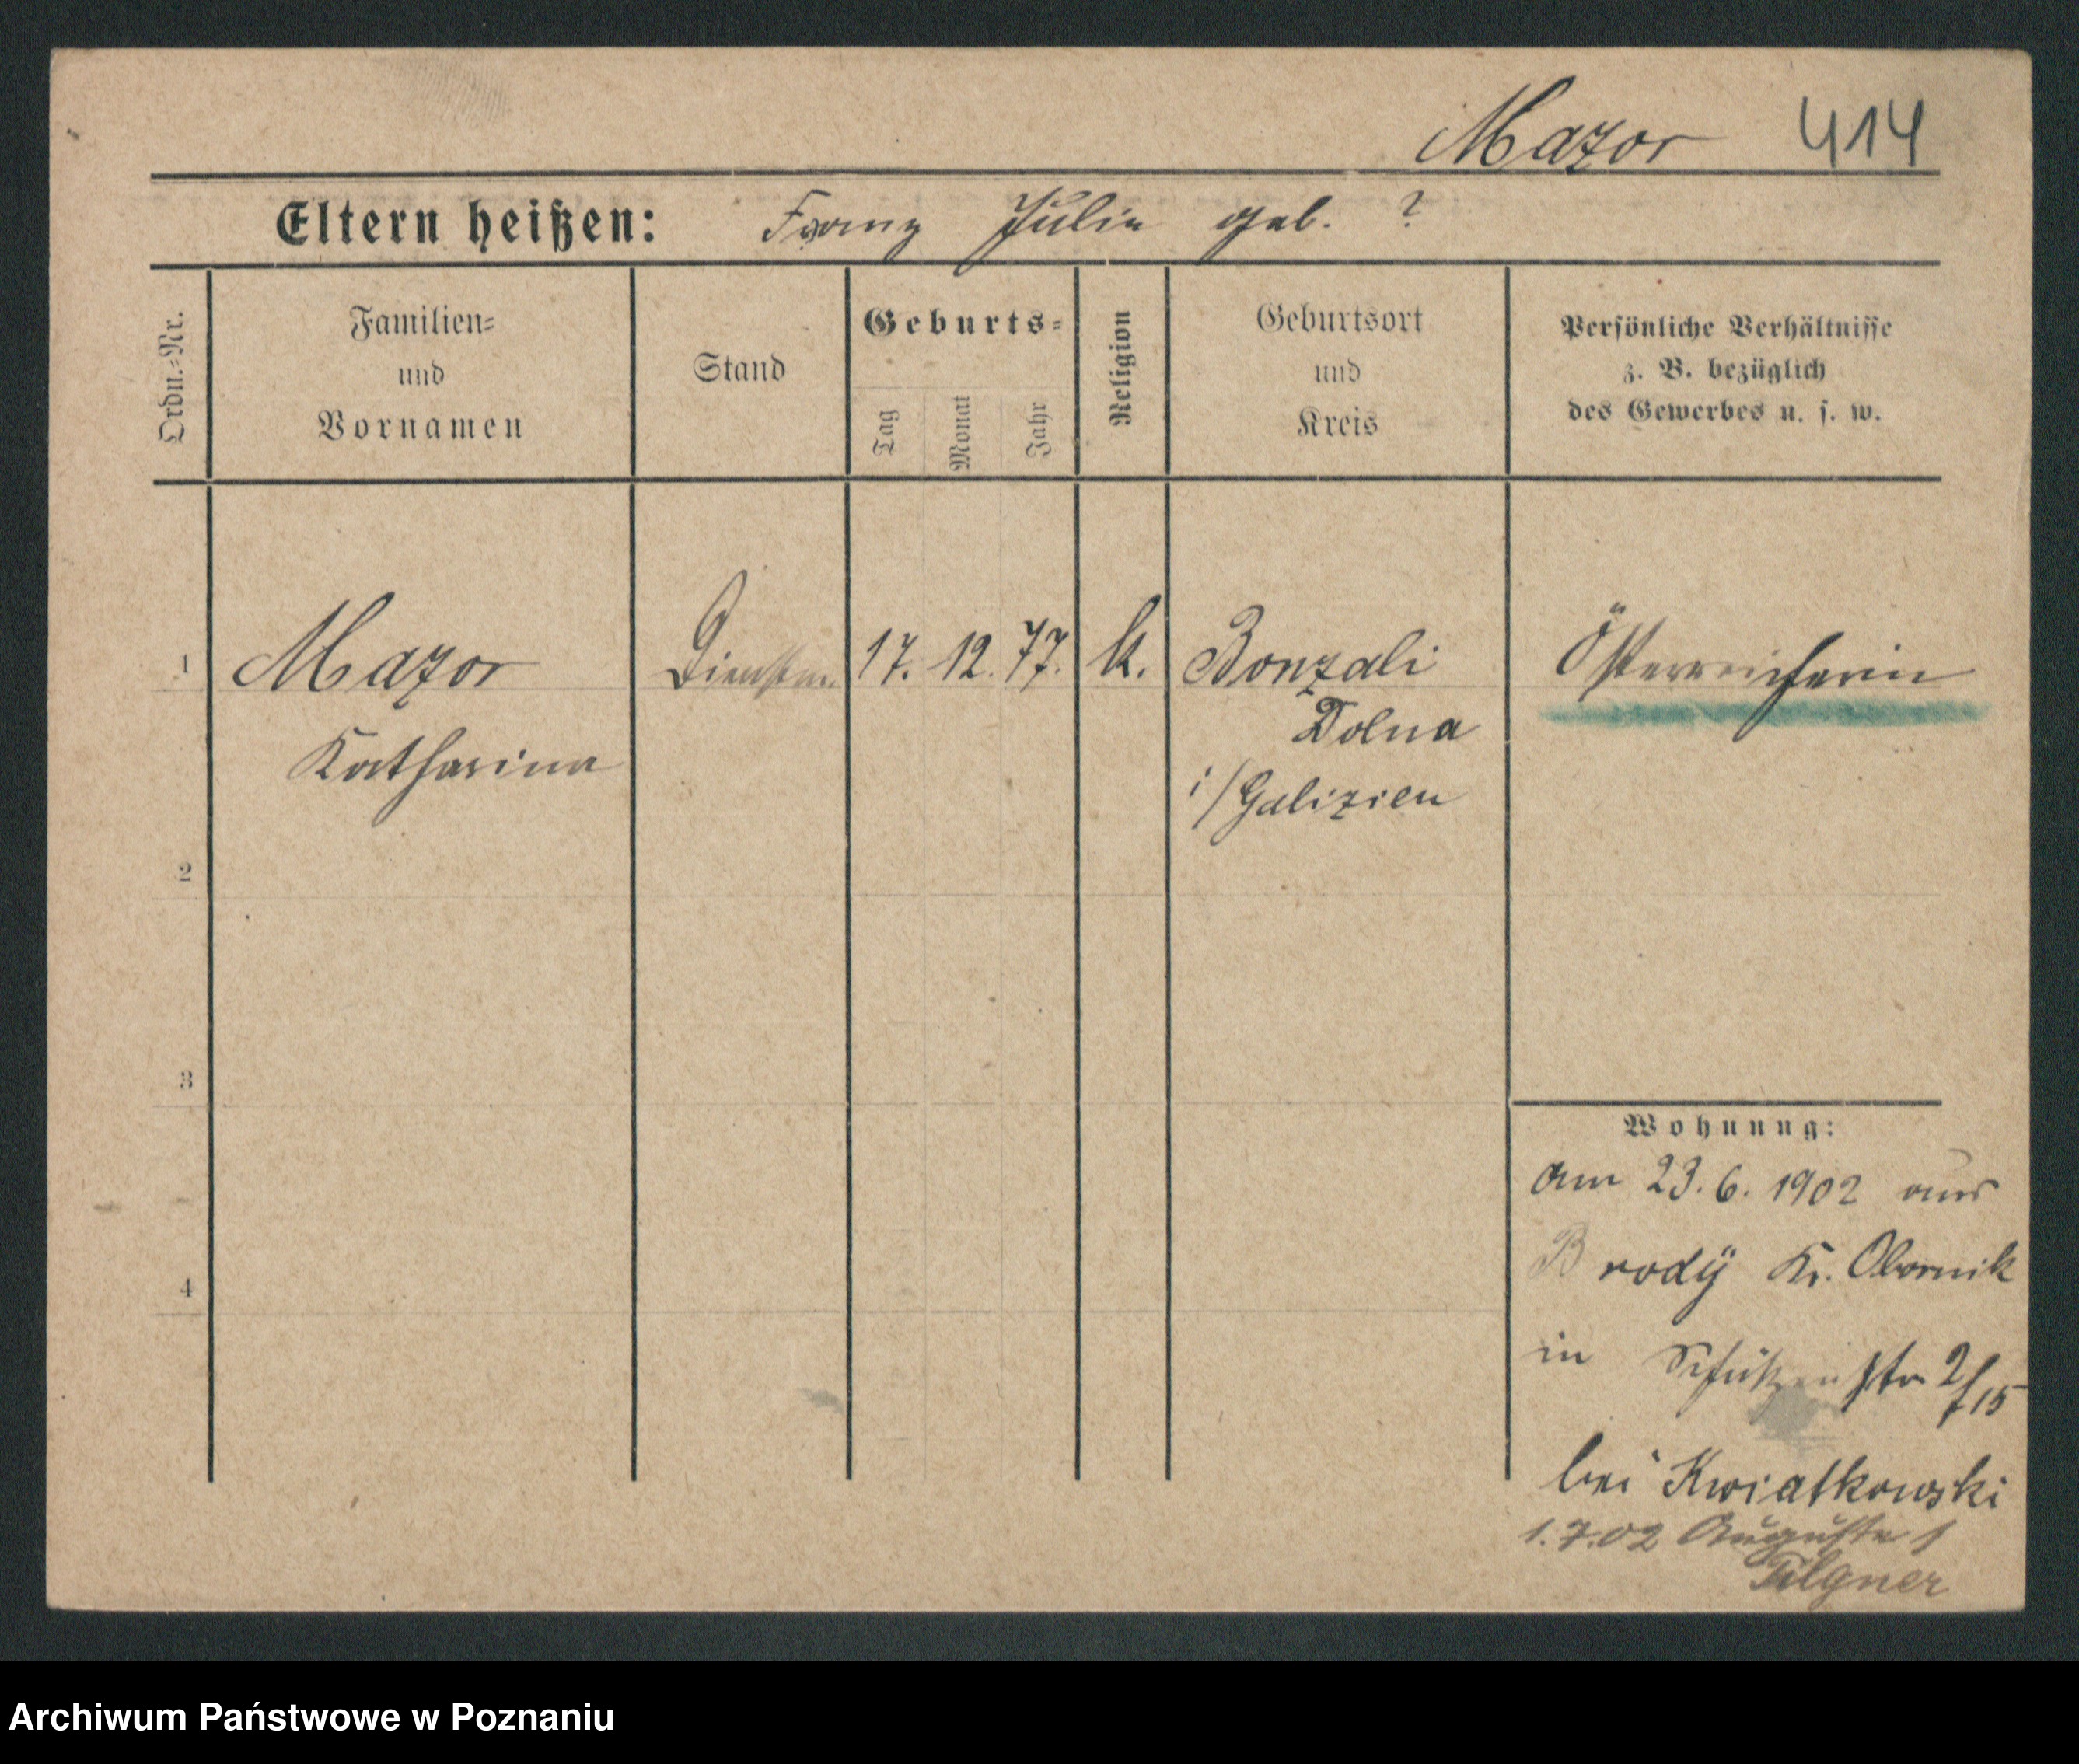 Mazor 414
Eltern heißen: Franz Julie geb. ?
Ordn.-Nr.
Familien-
und
Vornamen
Stand
Geburts-
Tag
Monat
Jahr
Religion
Geburtsort
und
Kreis
Persönliche Verhältnisse
z. B. bezüglich
des Gewerbes u. s. w.
1 Mazor 17. 12. 77. k. Bonzali Österreicherin
Katharina
Dolna
i/Galizien
2
3
4
Wohnung:
am 23. 6. 1902 aus
Brody Kr. Obornik
in Schützenstr 2/15
bei Kwiatkowski
1.7.02 Augusta 1
Tilgner
Archiwum Państwowe w Poznaniu